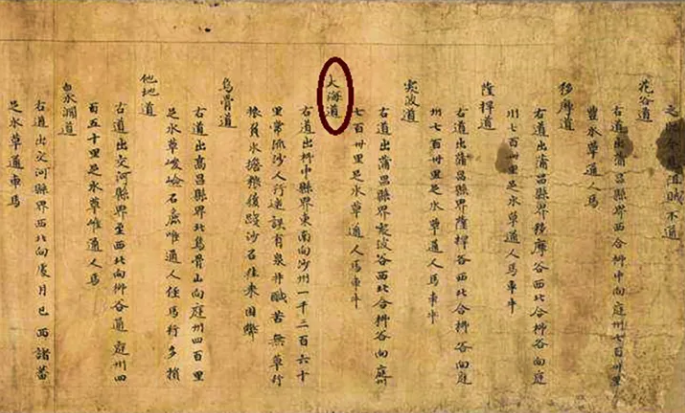 阻賊不通
花谷道
右道出蒲昌縣界西合柳中向庭州七百卅里
豐水草通人馬
移摩道
右道出蒲昌縣界移摩谷西北合柳谷向庭
州七百卅里足水草通人馬車牛
薩捍道
右道出蒲昌縣界薩捍谷西北合柳谷向庭
州七百卅里足水草通人馬車牛
突波道
右道出蒲昌縣界突波谷西北合柳谷向庭州
七百卅里足水草通人馬車牛
大海道
右道出柳中縣界東南向沙州一千三百六十
里常流沙人行迷誤有泉井鹹苦無草行
旅負水擔糧履踐沙石往來困弊
烏骨道
右道出高昌縣界北烏骨山向庭州四百里
足水草峻嶮石麄唯通人徑馬行多損
他地道
右道出交河縣界至西北向柳谷通庭州四
百五十里足水草唯通人馬
白水澗道
右道出交河縣界西北向處月已西諸蕃
足水草通車馬